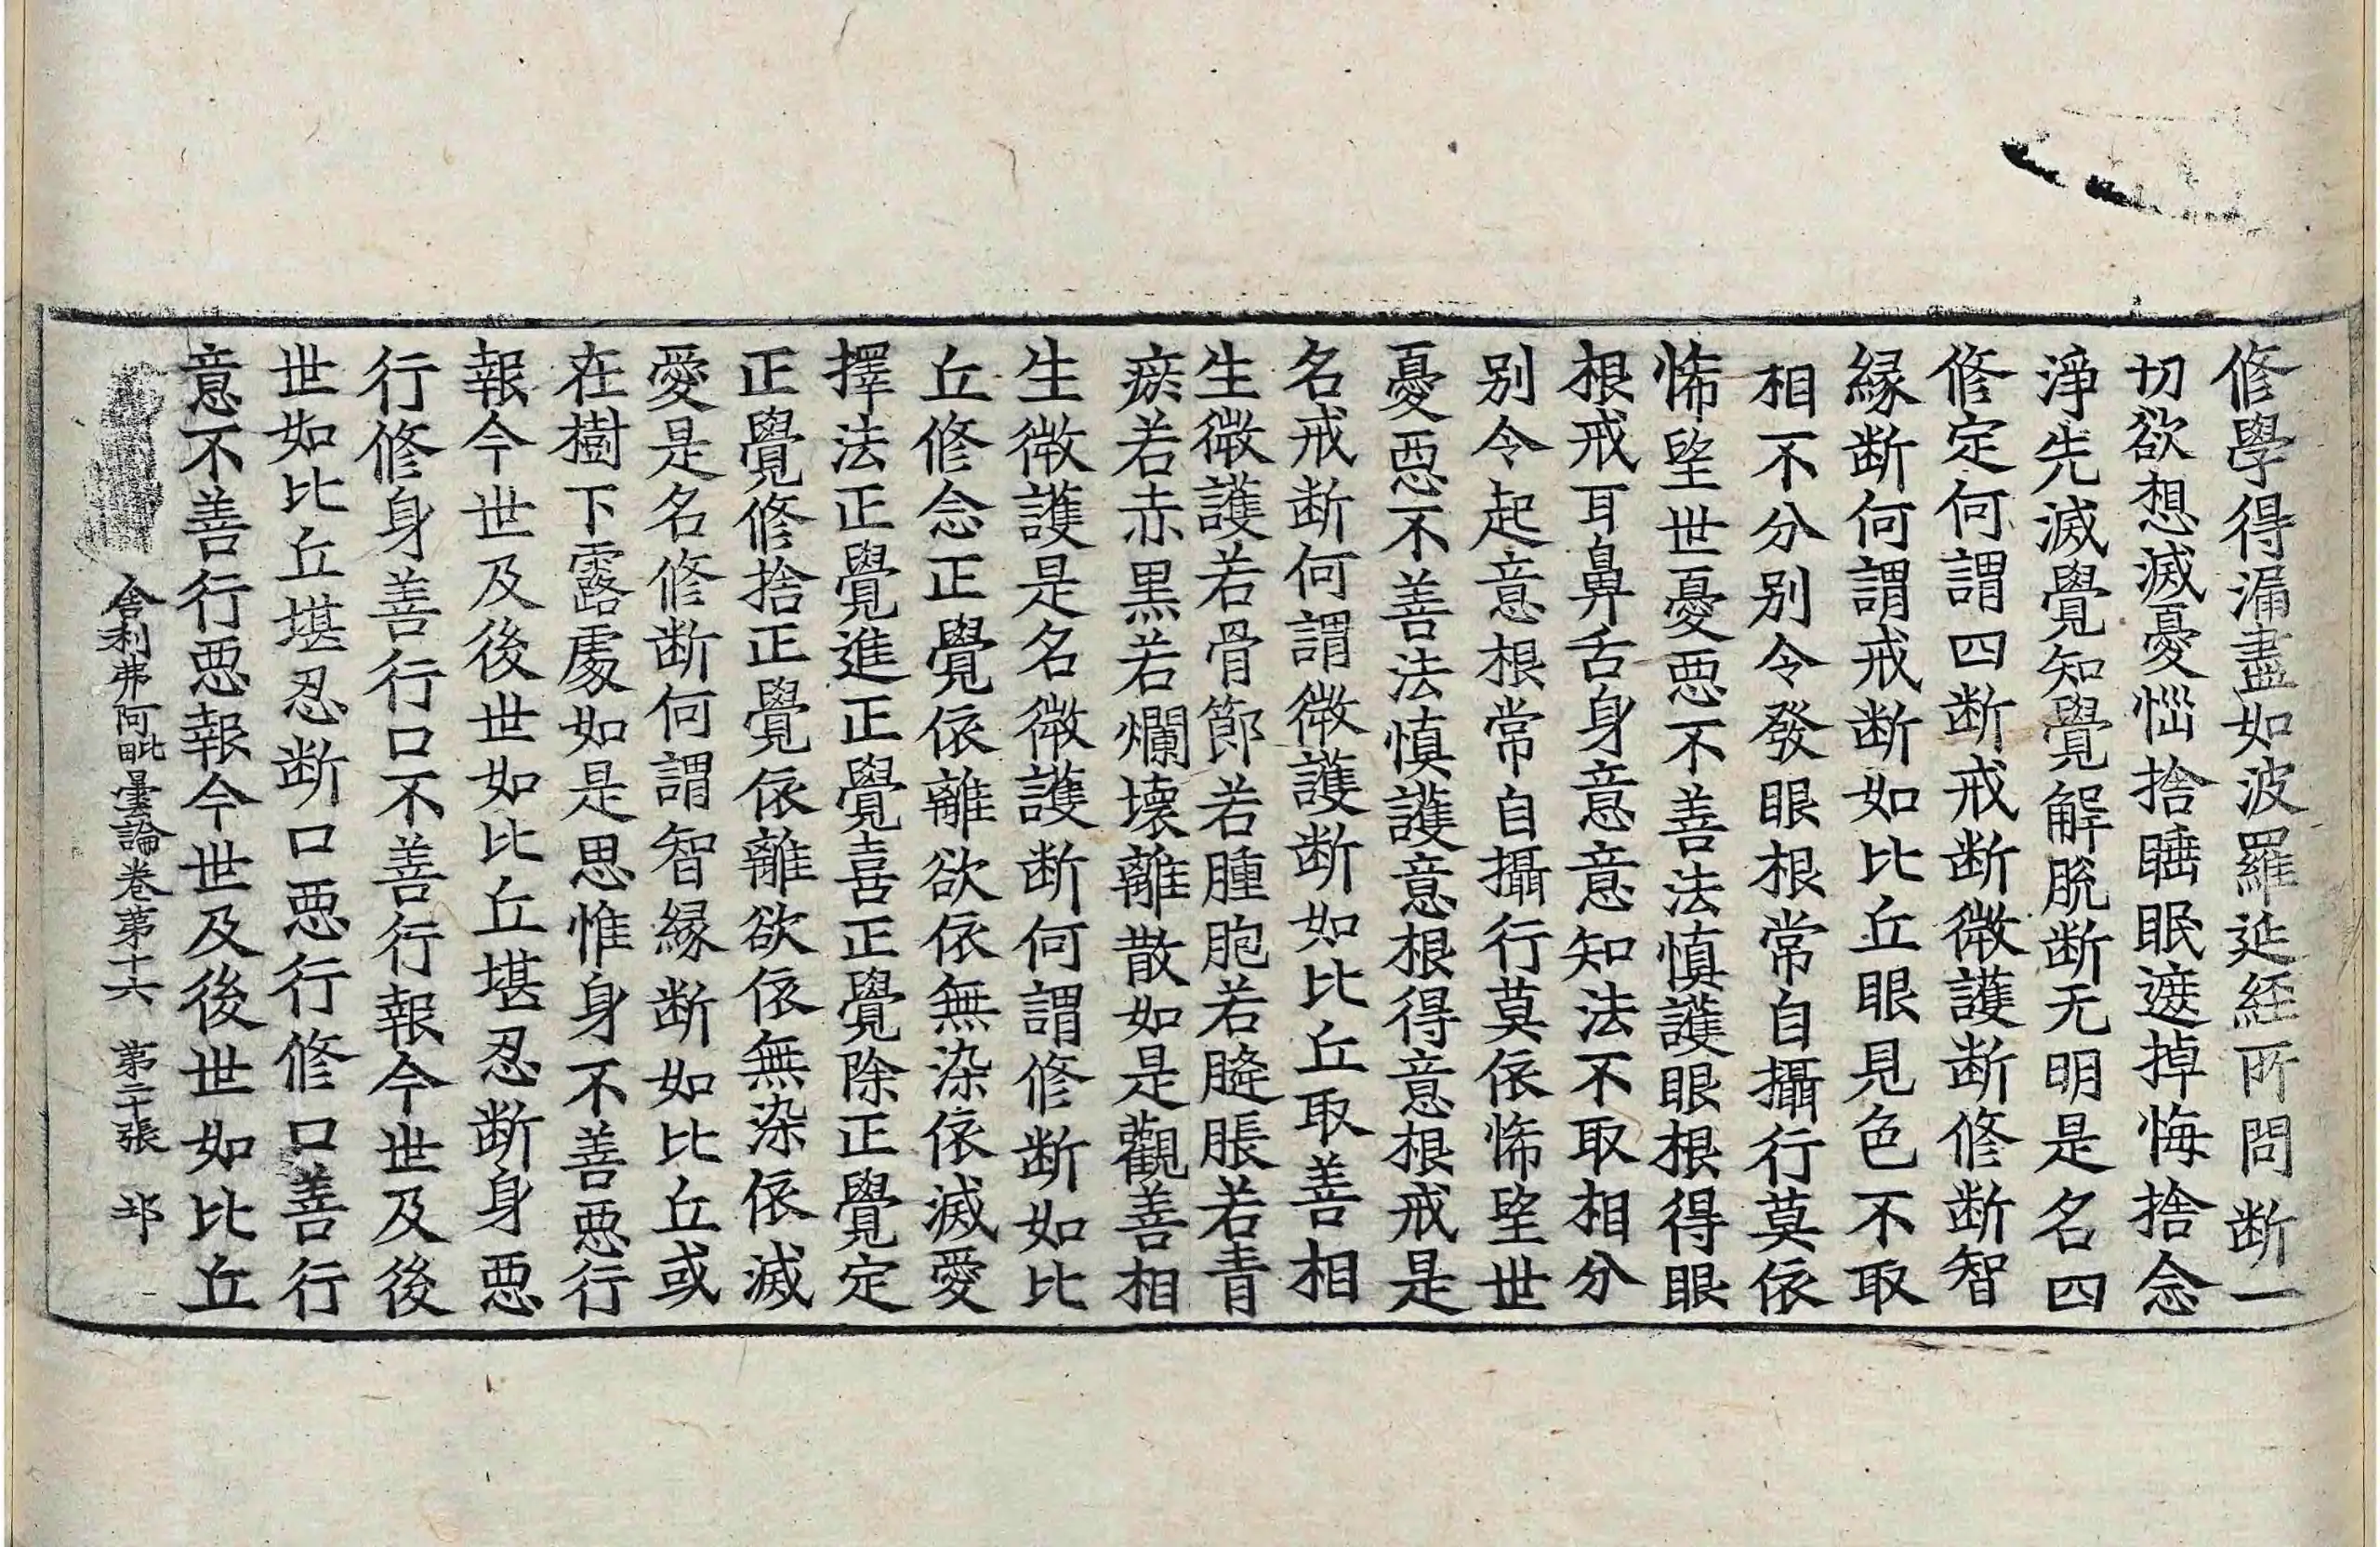 修學得漏盡如波羅延經所問断一
切欲想滅憂惱捨睡眠遮掉悔捨念
淨先滅覺知覺解脫断无明是名四
修定何謂四断戒断微護断修断智
緣断何謂戒断如比丘眼見色不取
相不分别令發眼根常自攝行莫依
悕望世憂惡不善法慎護眼根得眼
根戒耳鼻舌身意意知法不取相分
别令起意根常自攝行莫依悕望世
憂惡不善法慎護意根得意根戒是
名戒断何謂微護断如比丘取善相
生微護若骨節若膖胞若膖脹若青
瘀若赤黒若爛壞離散如是觀善相
生微護是名微護断何謂修断如比
丘修念正覺依離欲依無染依滅愛
擇法正覺進正覺喜正覺除正覺定
正覺修捨正覺依離欲依無染依滅
愛是名修断何謂智緣断如比丘或
在樹下露處如是思惟身不善惡行
報今世及後世如比丘堪忍断身惡
行修身善行口不善行報今世及後
世如比丘堪忍断口惡行修口善行
意不善行惡報今世及後世如比丘
舍利弗阿毗曇論卷第十六 第二十張 邙